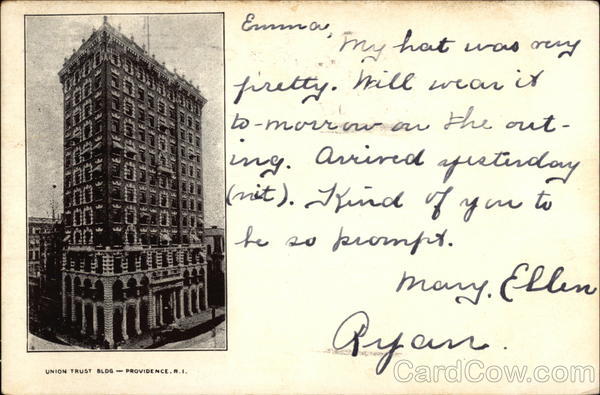 Emma,
My hat was very
pretty. Will wear it
to-morrow on the out-
ing. Arrived yesterday
(nit). Kind of you to
be so prompt.
Mary. Ellen
Ryan.
UNION TRUST BLDG — PROVIDENCE, R.I.
CardCow.com